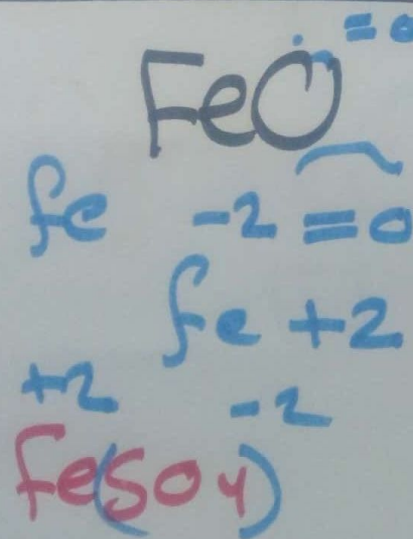 = 0
FeO
fe -2 = 0
fe +2
+2 -2
Fe(SO4)